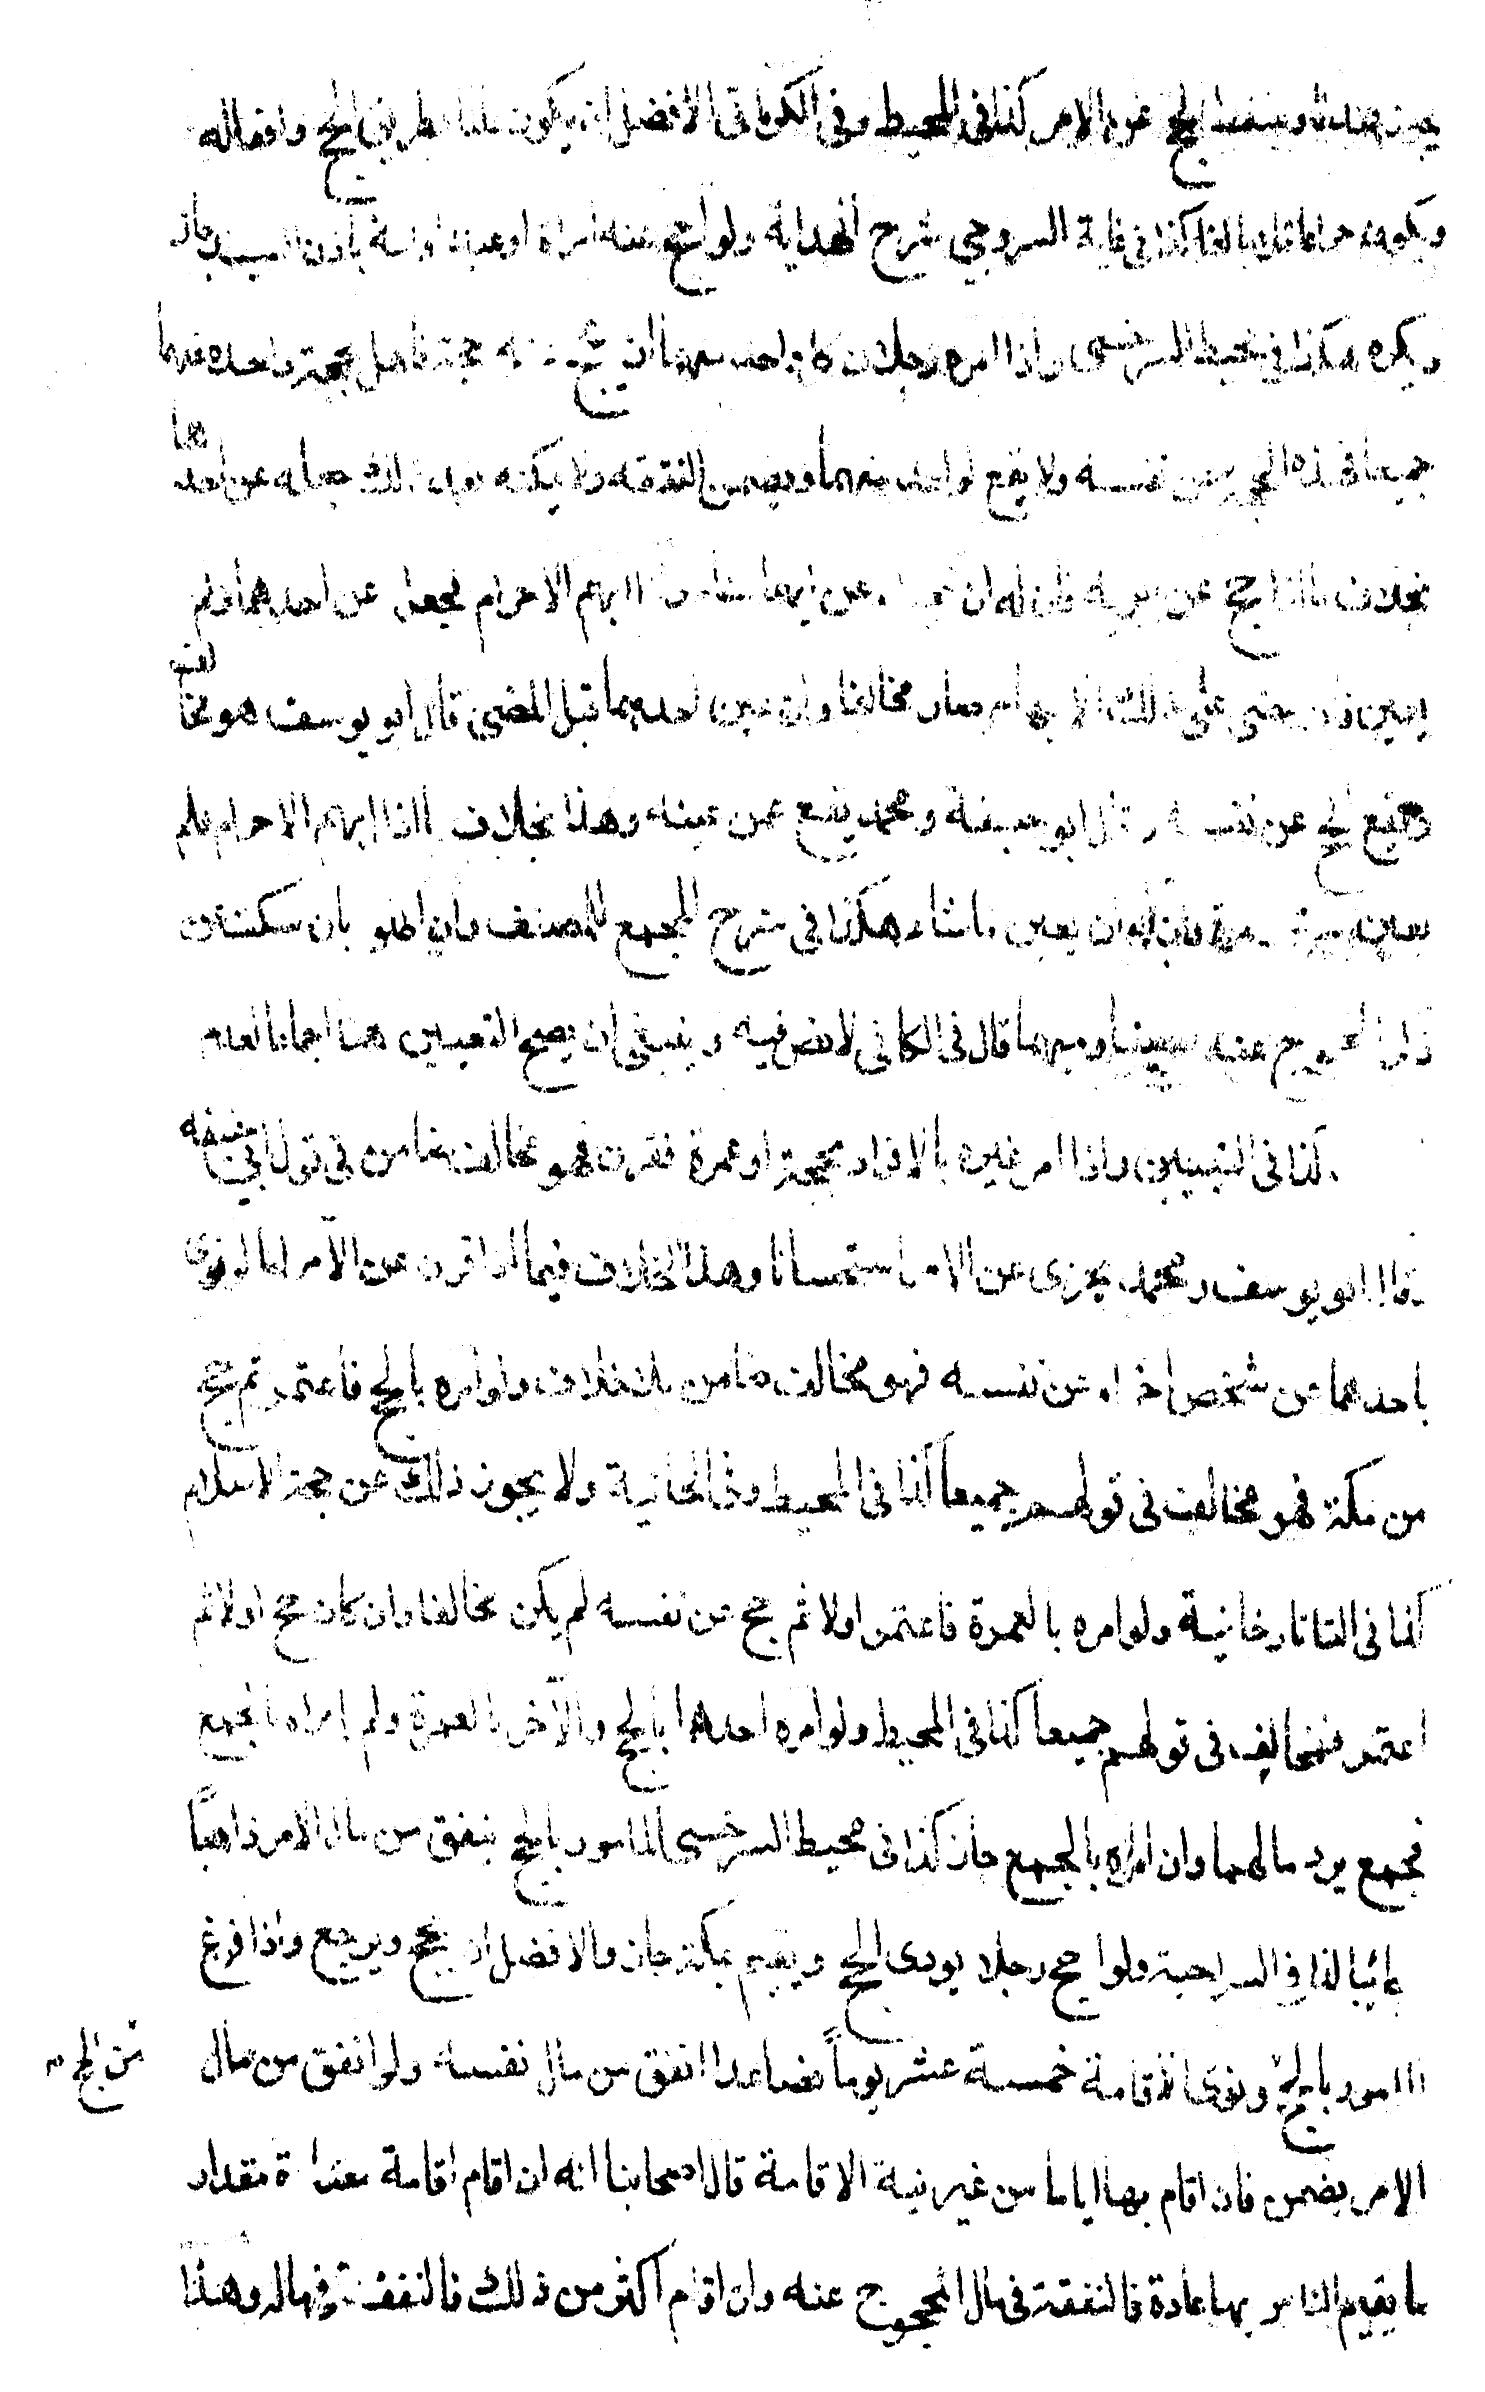 يجوز عندنا وسقط الحج عن الامر كذا في المحيط وفي الكرماني الافضل ان يكون عالما بطريق الحج وافعاله
ويكون حرا عاقلا بالغا كذا في غاية السروجي شرح الهداية ولو احج عنه امراة او عبدا او امة باذن السيد جاز
ويكره هكذا في محيط السرخسي واذا امره رجلان كل واحد منهما ان يحج عنه حجة فاهل بحجة واحدة عنهما
جميعا فهذه الحجة عن نفسه ولا يقع لواحد منهما ويضمن النفقة ولا يمكنه بعد ذلك جعله عن احدهما
بخلاف ما اذا حج عن ابويه فان له ان يجعله عن ايهما شاء وان ابهم الاحرام لجعل عن احدهما ولم
يعين فان مضى على ذلك الابهام صار مخالفا وان عين احدهما قبل المضي قال ابو يوسف هو مخالف
ويقع الحج عن نفسه وقال ابو حنيفة ومحمد يقع عمن عينه وهذا بخلاف ما اذا ابهم الاحرام فلم
يعين حجة او عمرة فان له ان يعين ما شاء هكذا في شرح المجمع للمصنف وان اطلق بان سكت عن
ذكر المحجوج عنه معينا ومبهما قال في الكافي لا نص فيه وينبغي ان يصح التعيين هنا اجماعا لعدم
كذا في التبيين واذا امر غيره بالافراد بحجة او عمرة فقرن فهو مخالف ضامن في قول ابي حنيفة
وقال ابو يوسف ومحمد يجزى عن الامر استحسانا وهذا الخلاف فيما اذا قرن عن الآمر اما لو نوى
باحدهما عن شخص آخر او عن نفسه فهو مخالف ضامن بلا خلاف ولو امره بالحج فاعتمر ثم حج
من مكة فهو مخالف في قولهم جميعا كذا في المحيط وفي الخانية ولا يجوز ذلك عن حجة الاسلام
كذا في التاتارخانية ولو امره بالعمرة فاعتمر اولا ثم حج عن نفسه لم يكن مخالفا وان كان حج اولا ثم
اعتمر فمخالف في قولهم جميعا كذا في المحيط ولو امره احدهما بالحج والآخر بالعمرة ولم يامراه بالجمع
فجمع يرد مالهما وان امراه بالجمع جاز كذا في محيط السرخسي المامور بالحج ينفق من مال الآمر ذاهباً
وجائيا كذا في السراجية ولو احج رجلا يودى الحج ويقيم بمكة جاز والافضل ان يحج ويرجع واذا فرغ
المامور بالحج ونوى الاقامة خمسة عشر يوماً فصاعدا انفق من مال نفسه ولو انفق من مال
من الحج
الامر يضمن فان اقام بها اياما من غير نية الاقامة قال اصحابنا انه ان اقام اقامة معتادة مقدار
ما يقيم الناس بها عادة فالنفقة في مال المحجوج عنه وان اقام اكثر من ذلك فالنفقة في ماله وهذا